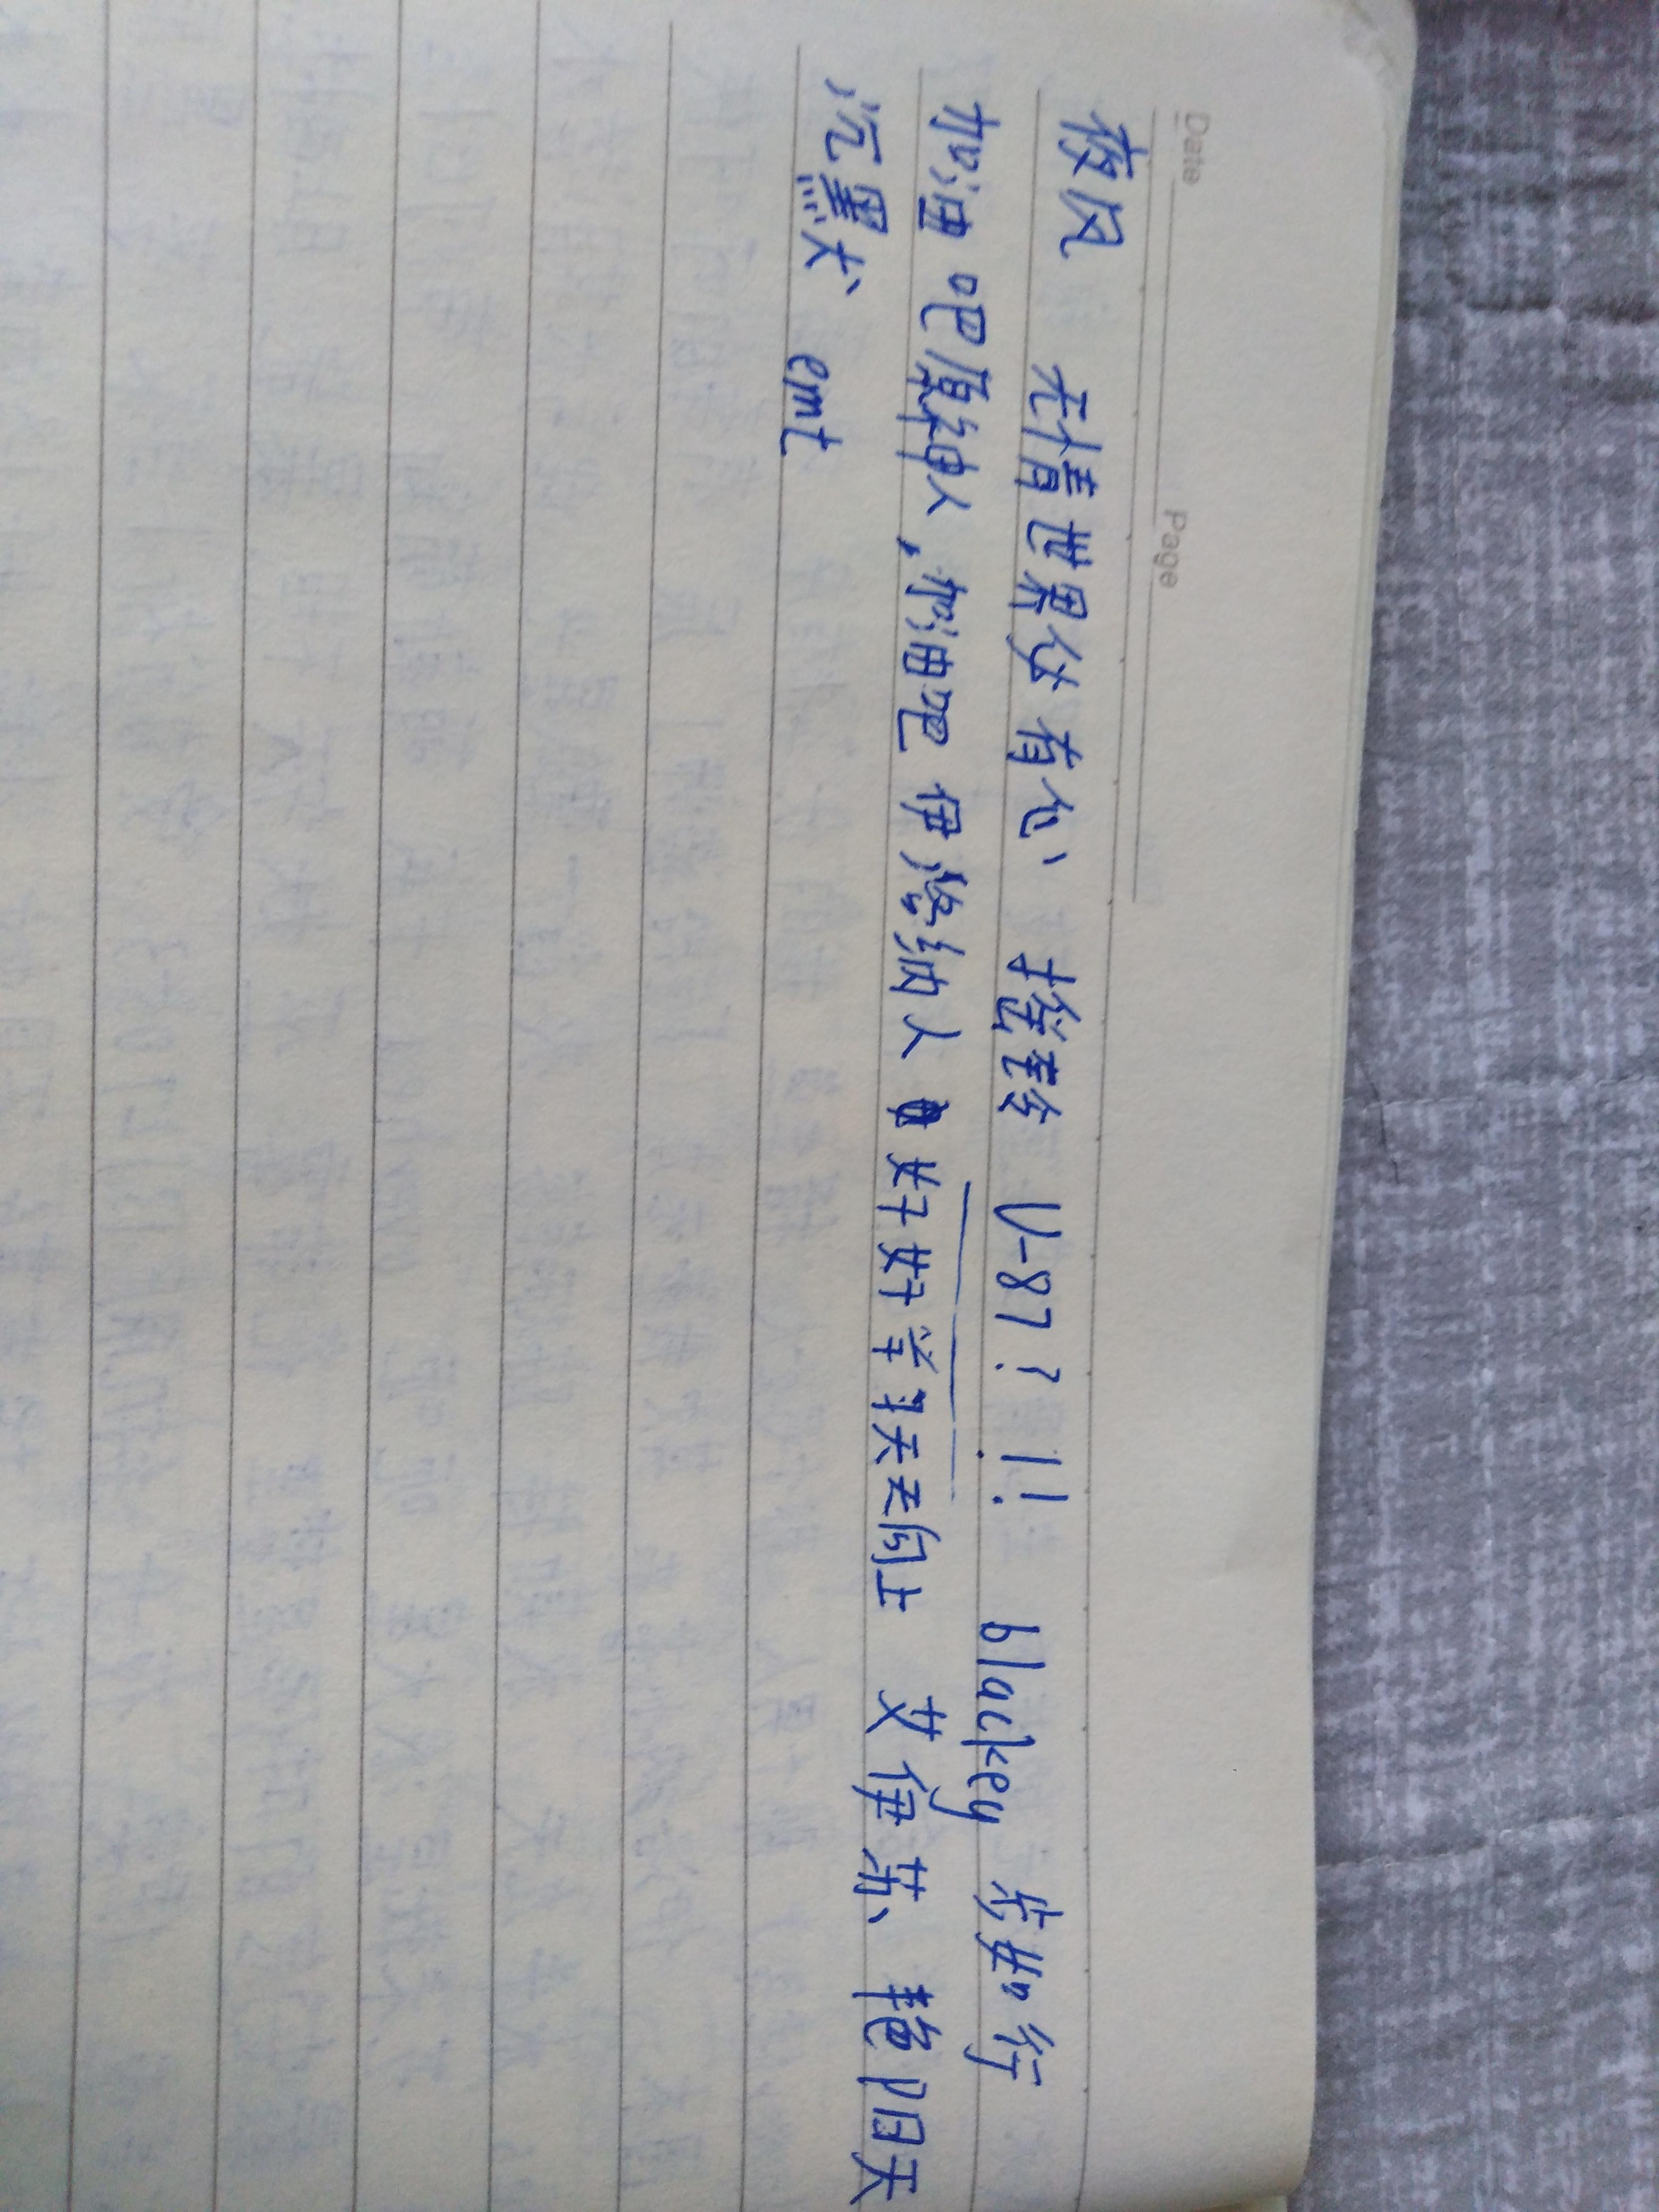 Date Page
夜风 无情世界佼有心 V-87?!! blackey 步如行
加油吧原神人,加油吧伊洛纳人 好好学习天天向上 艾伊苏、艳阳天
沉黑犬 emt